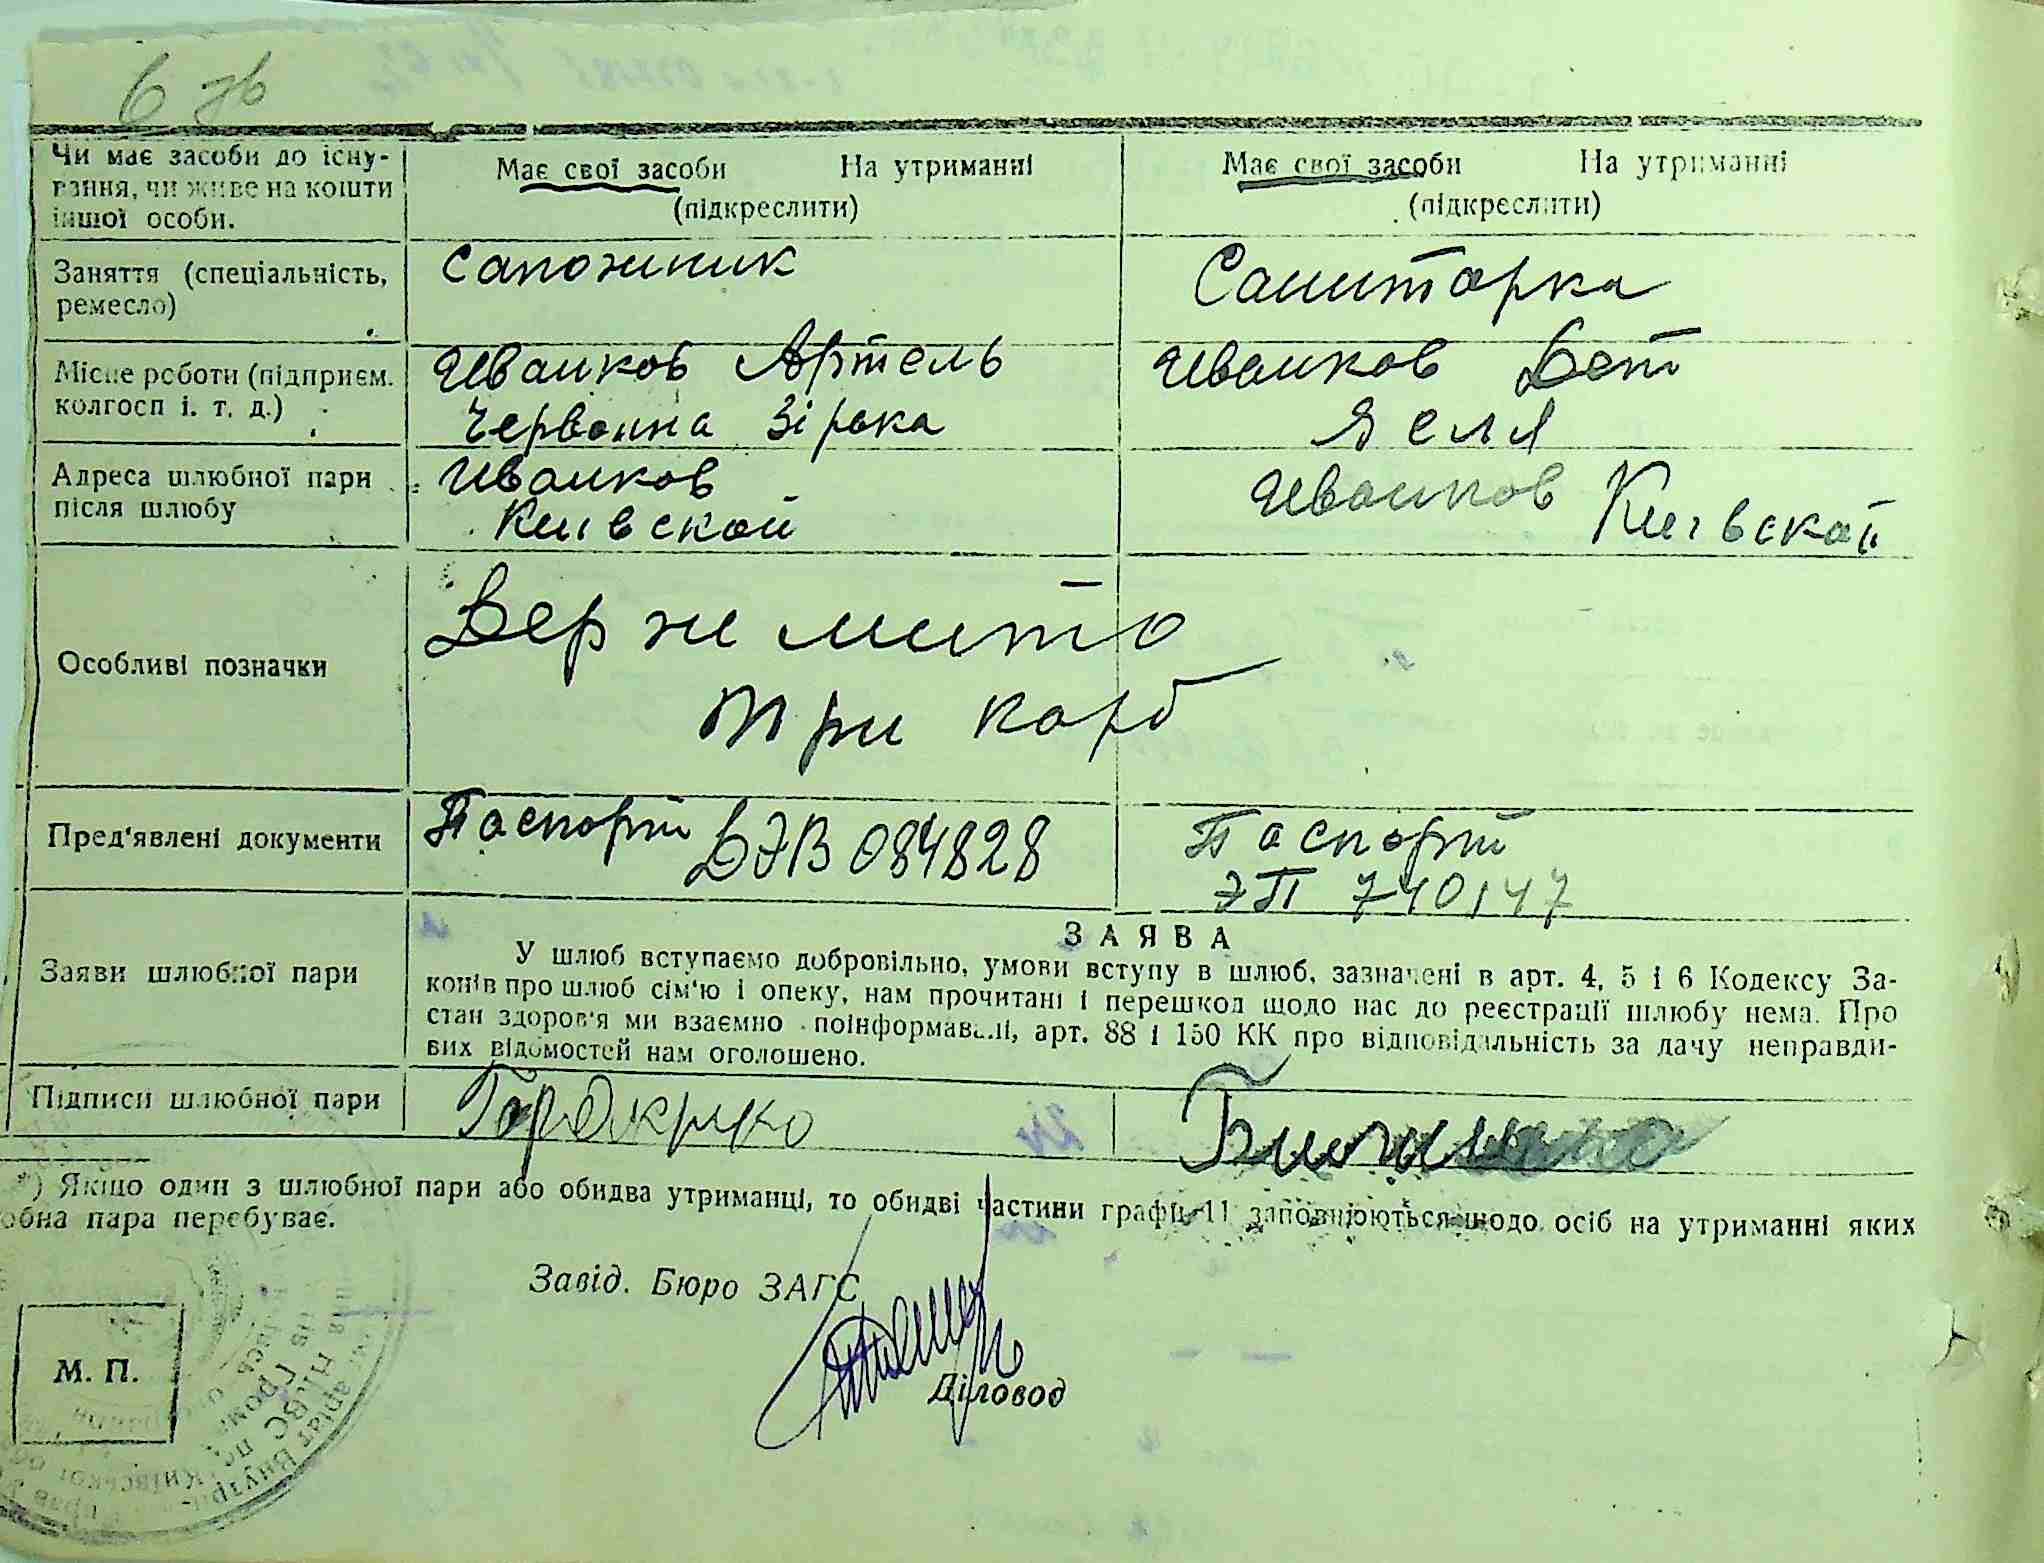 6 зв
Чи має засоби до існу-
вання, чи живе на кошти
іншої особи.
Має свої засоби На утриманні
(підкреслити)
Має свої засоби На утриманні
(підкреслити)
Заняття (спеціальність,
ремесло)
Сапожник
Санитарка
Місце роботи (підприєм.
колгосп і. т. д.)
Иванков Артель
Червонна Зірка
Иванков Дет
Ясля
Адреса шлюбної пари
після шлюбу
Иванков
Киівской
Иванков Киівской
Особливі позначки
Держ мито
три карб
Пред'явлені документи
Паспорт ДЭВ 084828
Паспорт
ЭП 740147
Заяви шлюбної пари
ЗАЯВА
У шлюб вступаємо добровільно, умови вступу в шлюб, зазначені в арт. 4, 5 і 6 Кодексу За-
конів про шлюб сім'ю і опеку, нам прочитані і перешкод щодо нас до реєстрації шлюбу нема. Про
стан здоров'я ми взаємно поінформавалі, арт. 88 і 150 КК про відповідальність за дачу неправди-
вих відомостей нам оголошено.
Підписи шлюбної пари
*) Якщо один з шлюбної пари або обидва утриманці, то обидві частини графи 11 заповнюються щодо осіб на утриманні яких
обна пара перебуває.
Завід. Бюро ЗАГС
Діловод
М. П.